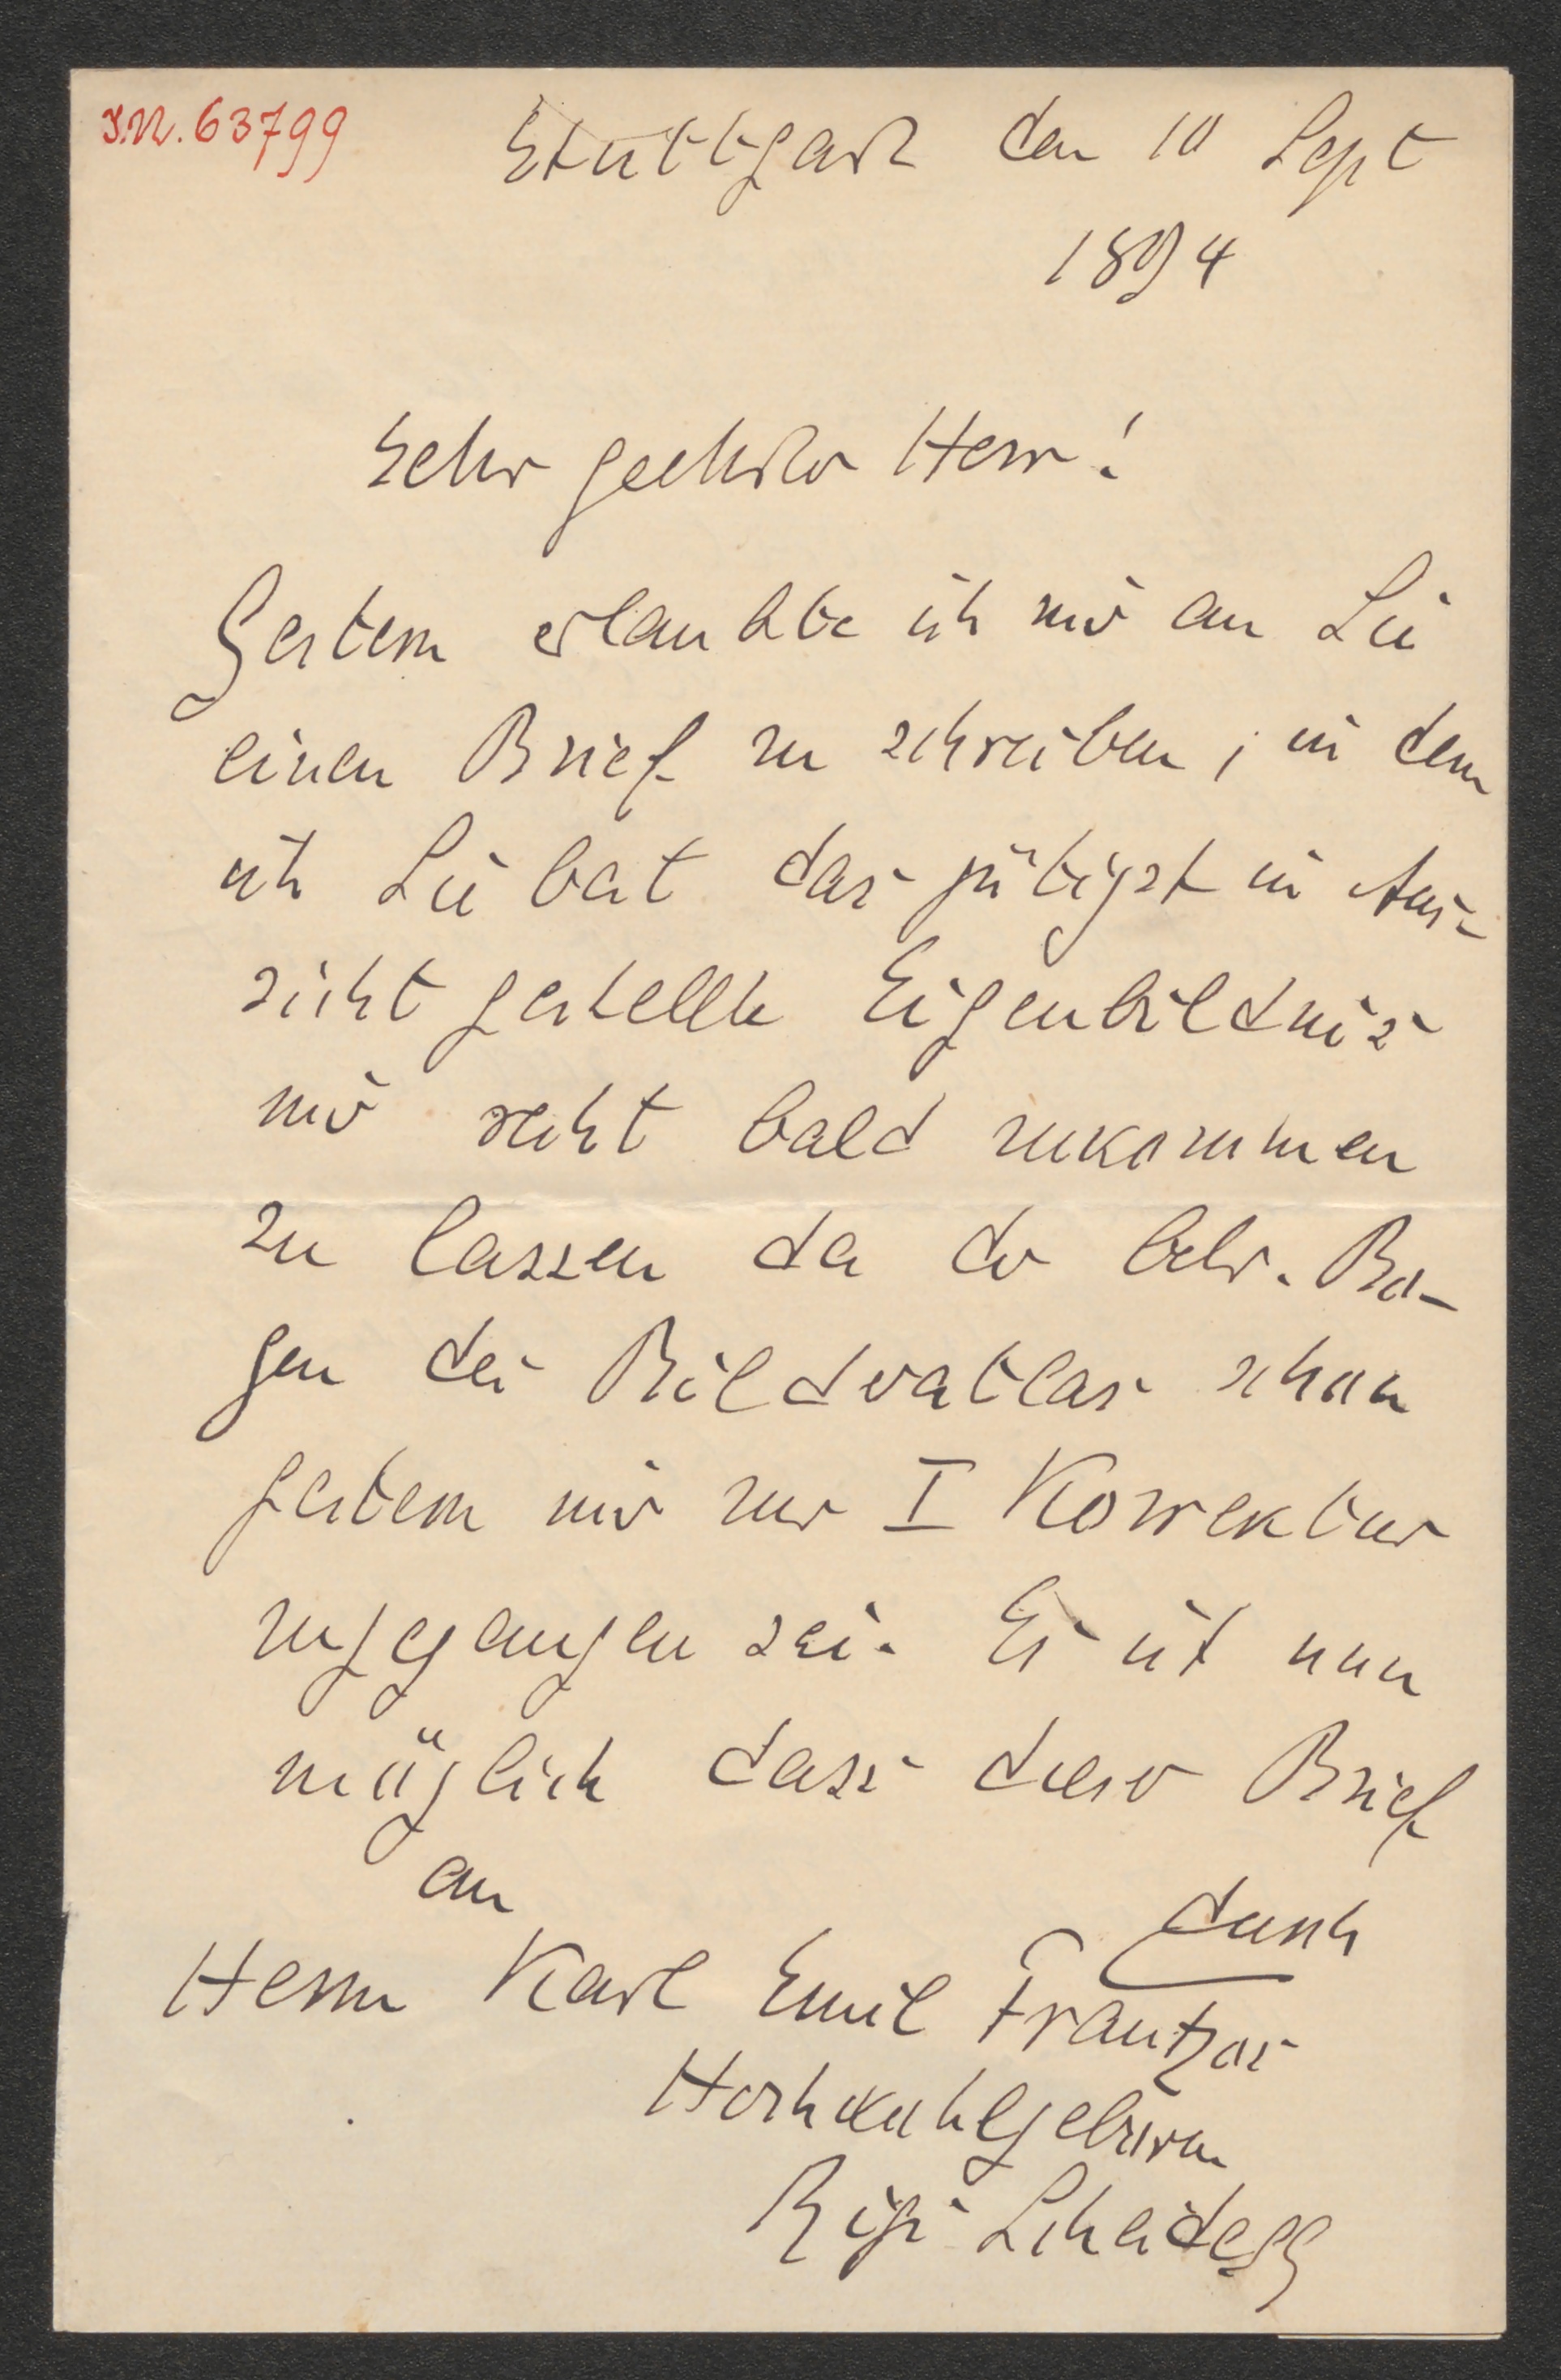 I.N. 63799
Stuttgart den 10 Sept
1894
Sehr geehrter Herr!
Gestern erlaubte ich mir an Sie
einen Brief zu schreiben, in dem
ich Sie bat das gütigst in Aus-
sicht gestellte Eigenbildnis
mir recht bald zukommen
zu lassen da der betr. Bo-
gen des Bilderatlas schon
gestern mir zur I Korrektur
zugegangen sei. Es ist nun
möglich dass dieser Brief
durch
an
Herrn Karl Emil Frantzos
Hochwohlgeboren
Rigi